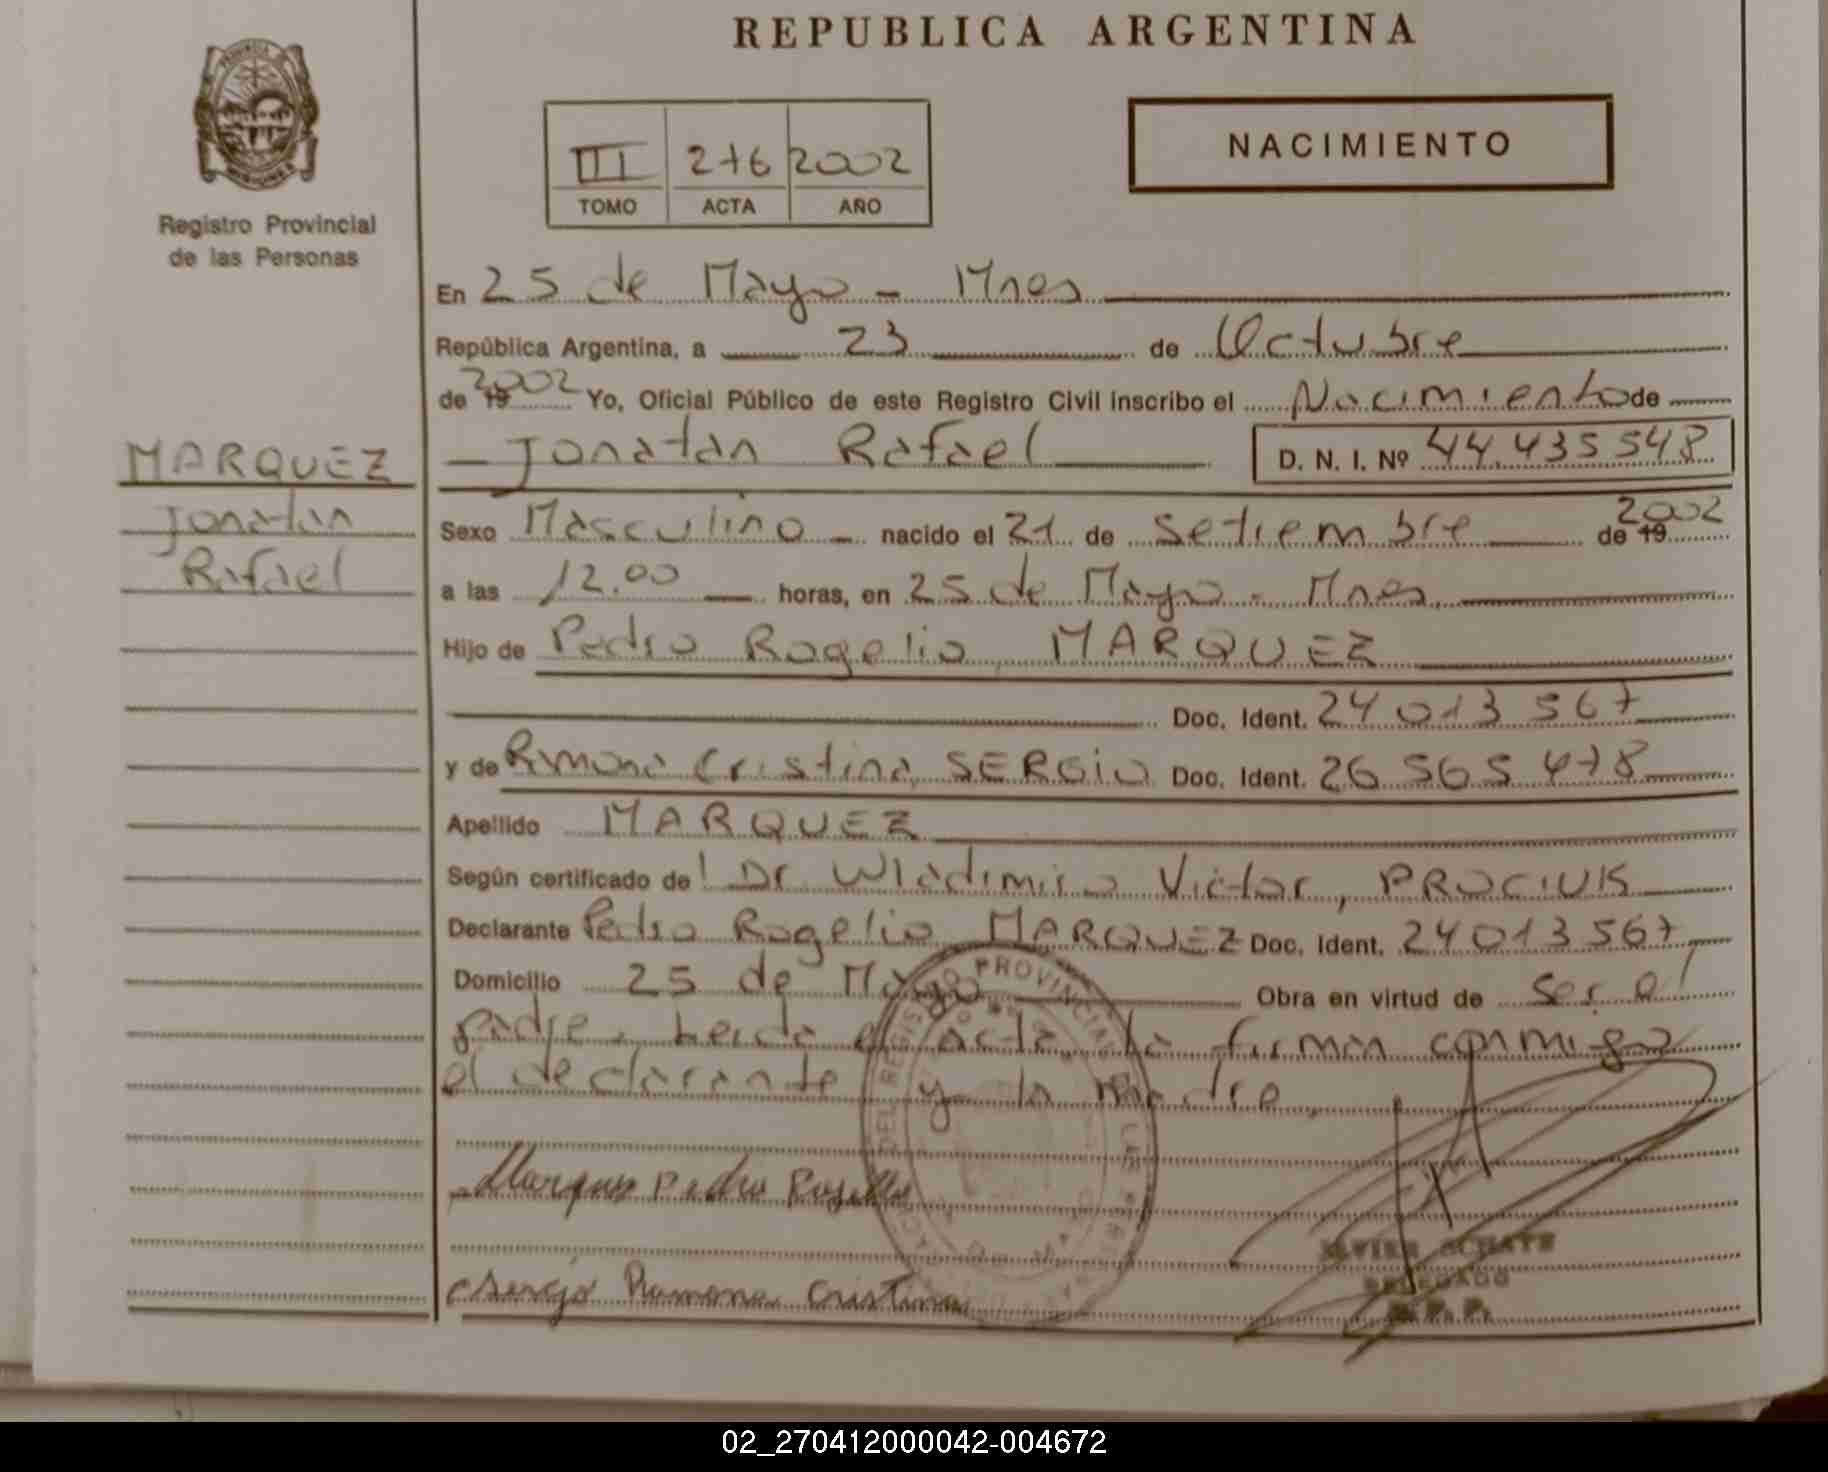 REPUBLICA ARGENTINA
PROVINCIA
MISIONES
Registro Provincial
de las Personas
NACIMIENTO
III 276 2002
TOMO ACTA AÑO
En 25 de Mayo - Mnes
República Argentina, a 23 de Octubre
de 19 2002 Yo, Oficial Público de este Registro Civil inscribo el Nacimiento de
Jonatan Rafael D. N. I. Nº 44.435548
MARQUEZ
Jonatan
Rafael
Sexo Masculino - nacido el 21 de Setiembre de 19 2002
a las 12.00 horas, en 25 de Mayo - Mnes.
Hijo de Pedro Rogelio MARQUEZ
Doc. Ident. 24 013 567
y de Ramona Cristina SERGIO Doc. Ident. 26 565 478
Apellido MARQUEZ
Según certificado del Dr. Wladimiro Victor, PROCIUK
Declarante Pedro Rogelio MARQUEZ Doc. Ident. 24 013 567
Domicilio 25 de Mayo Obra en virtud de ser el
padre. Leida el acta, la firman conmigo
el declarante y la madre.
Marquez Pedro Rogelio
Sergio Ramona Cristina
DEL REGISTRO PROVINCIAL DE LAS PERSONAS
JAVIER
DELEGADO
R. P. P.
02_270412000042-004672